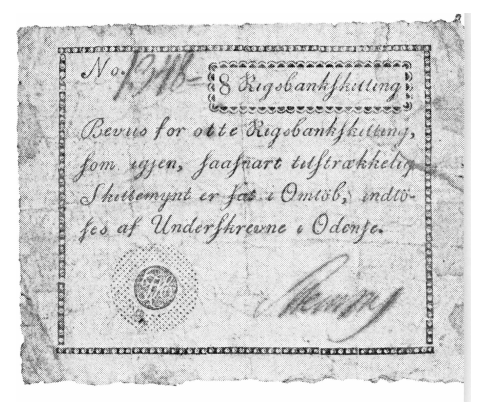 No. 1348
8 Rigsbankskilling
Beviis for otte Rigsbankskilling,
som igjen, saasnart tilstrækkelig
Skillemynt er sat i Omlöb, indlö-
ses af Underskrevne i Odense.